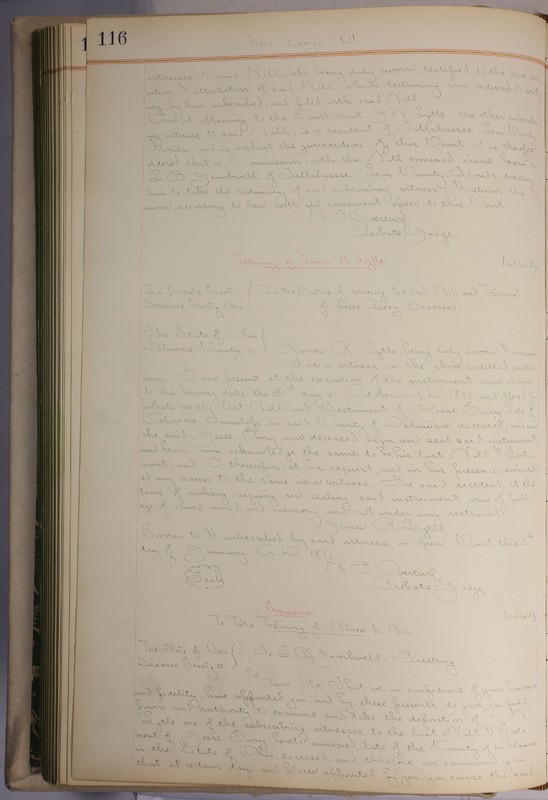 116
Will
witness to said Will, who being duly sworn, testified to the due exe
cution & attestation of said Will which testimony was reduced to writ
ing by him subscribed, and filed with said Will.
And it appearing to the Court that J. R. Lytle, the other subscrib
ing witness to said Will, is a resident of Tallahassee Leon County
Florida and is without the jurisdiction of this Court, it is therefore
ordered that a Commission, with the Will annexed, issue
L. B. of Tallahassee Leon County Florida
him to take the testimony of said subscribing witness & return the
same, according to law, with all convenient speed, to this Court.
Probate Judge.
Testimony of James R. Lytle
In Probate Court
Delaware County Ohio
In the Matter of proving the last Will and Testament
of Jesse Deceased.
The State of Ohio
Delaware County ss
James R. Lytle being duly sworn
as a witness in the above entitled matter
says: I was present at the execution of the instrument now shown
to me bearing date the 31st day of October A.D. 1890 and offered for
probate as the last Will and Testament of Jesse late of
Delaware Township, in said County of Delaware, deceased, and saw
the said Jesse now deceased sign and seal said instrument
and heard him acknowledge the same to be his last Will & Testa
ment, and I thereupon, at his request, and in his presence subscrib
ed my name to the same as a witness. The said decedent at the
time of making, signing and sealing said instrument, was of full
age, of sound mind and memory, and not under any restraint.
James R. Lytle
Sworn to & subscribed by said witness in open Court, this
day of January A.D. 1891.
Seal
Probate Judge
Commission
To Take Testimony of Witness to Will.
The State of Ohio
Delaware County ss
To L. B. Greeting
Know Ye, That we, in confidence of your prudence
and fidelity, have appointed you and by these presents do give you full
power and authority to examine and take the deposition of J. R.
Lytle one of the subscribing witnesses to the last Will & Testa
ment of Jesse hereto annexed, late of the County of Delaware
in the State of Ohio, deceased, and therefore we command you,
that at certain day and places appointed by you, you cause the said